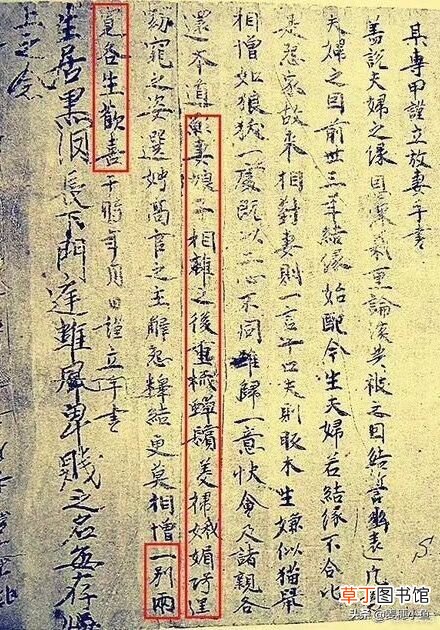 某專甲謹立放妻手書
蓋說夫婦之緣恩深義重論談共被之因結誓幽遠凡為
夫婦之因前世三年結緣始配今生夫婦若結緣不合比
是怨家故來相對妻則一言十口夫則販木生嫌似猫鼠
相憎如狼猿一處既以二心不同難歸一意快會及諸親各
還本道 妻娘子相離之後重梳蟬鬢美掃娥媚巧逞
窈窕之姿選娉高官之主解怨釋結更莫相憎一別兩
寬各生歡喜于時年月日謹立手書
生居 長下門庭雖 卑賤之名無存
上之
草图书馆
头条@